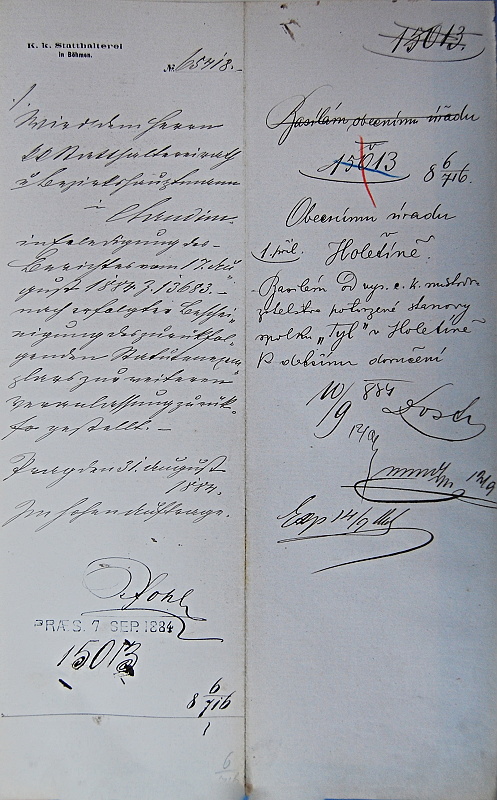 K. k. Statthalterei
in Böhmen.
№ 65418.-
Wird dem Herrn
k k Statthaltereirath
u Bezirkshauptmann
in Chrudim
in Erledigung des
Berichtes vom 17. Au-
gust 1884 Z. 13683. –
nach erfolgter Beschei-
nigung des zurückfol-
genden Statutenexem-
plars zur weiteren
Veranlassung zurück-
gestellt. –
Prag den 31. August
1884.
Im hohen Auftrage.
PRÆS. 7 SEP. 1884
15013
8 6/716
15013.
Zasílám obecnímu úřadu
v
15013
8 6/716.
Obecnímu úradu
v
1 příl. Holetíně.
Zasílám od vys. c. k. místodr-
žitelstva potvrzené stanovy
spolku „Tyl" v Holetíně
k dalšímu doručení
10/9 884
12/9
12/9
Exp 14/9